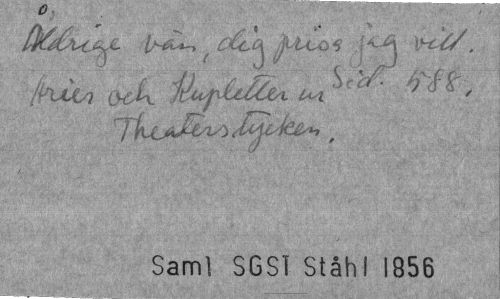 Åldrige vän, dig prisa jag vill.
Arier och Kupletter ur Sid. 588.
Theaterstycken.
Saml SGSÏ Ståhl 1856